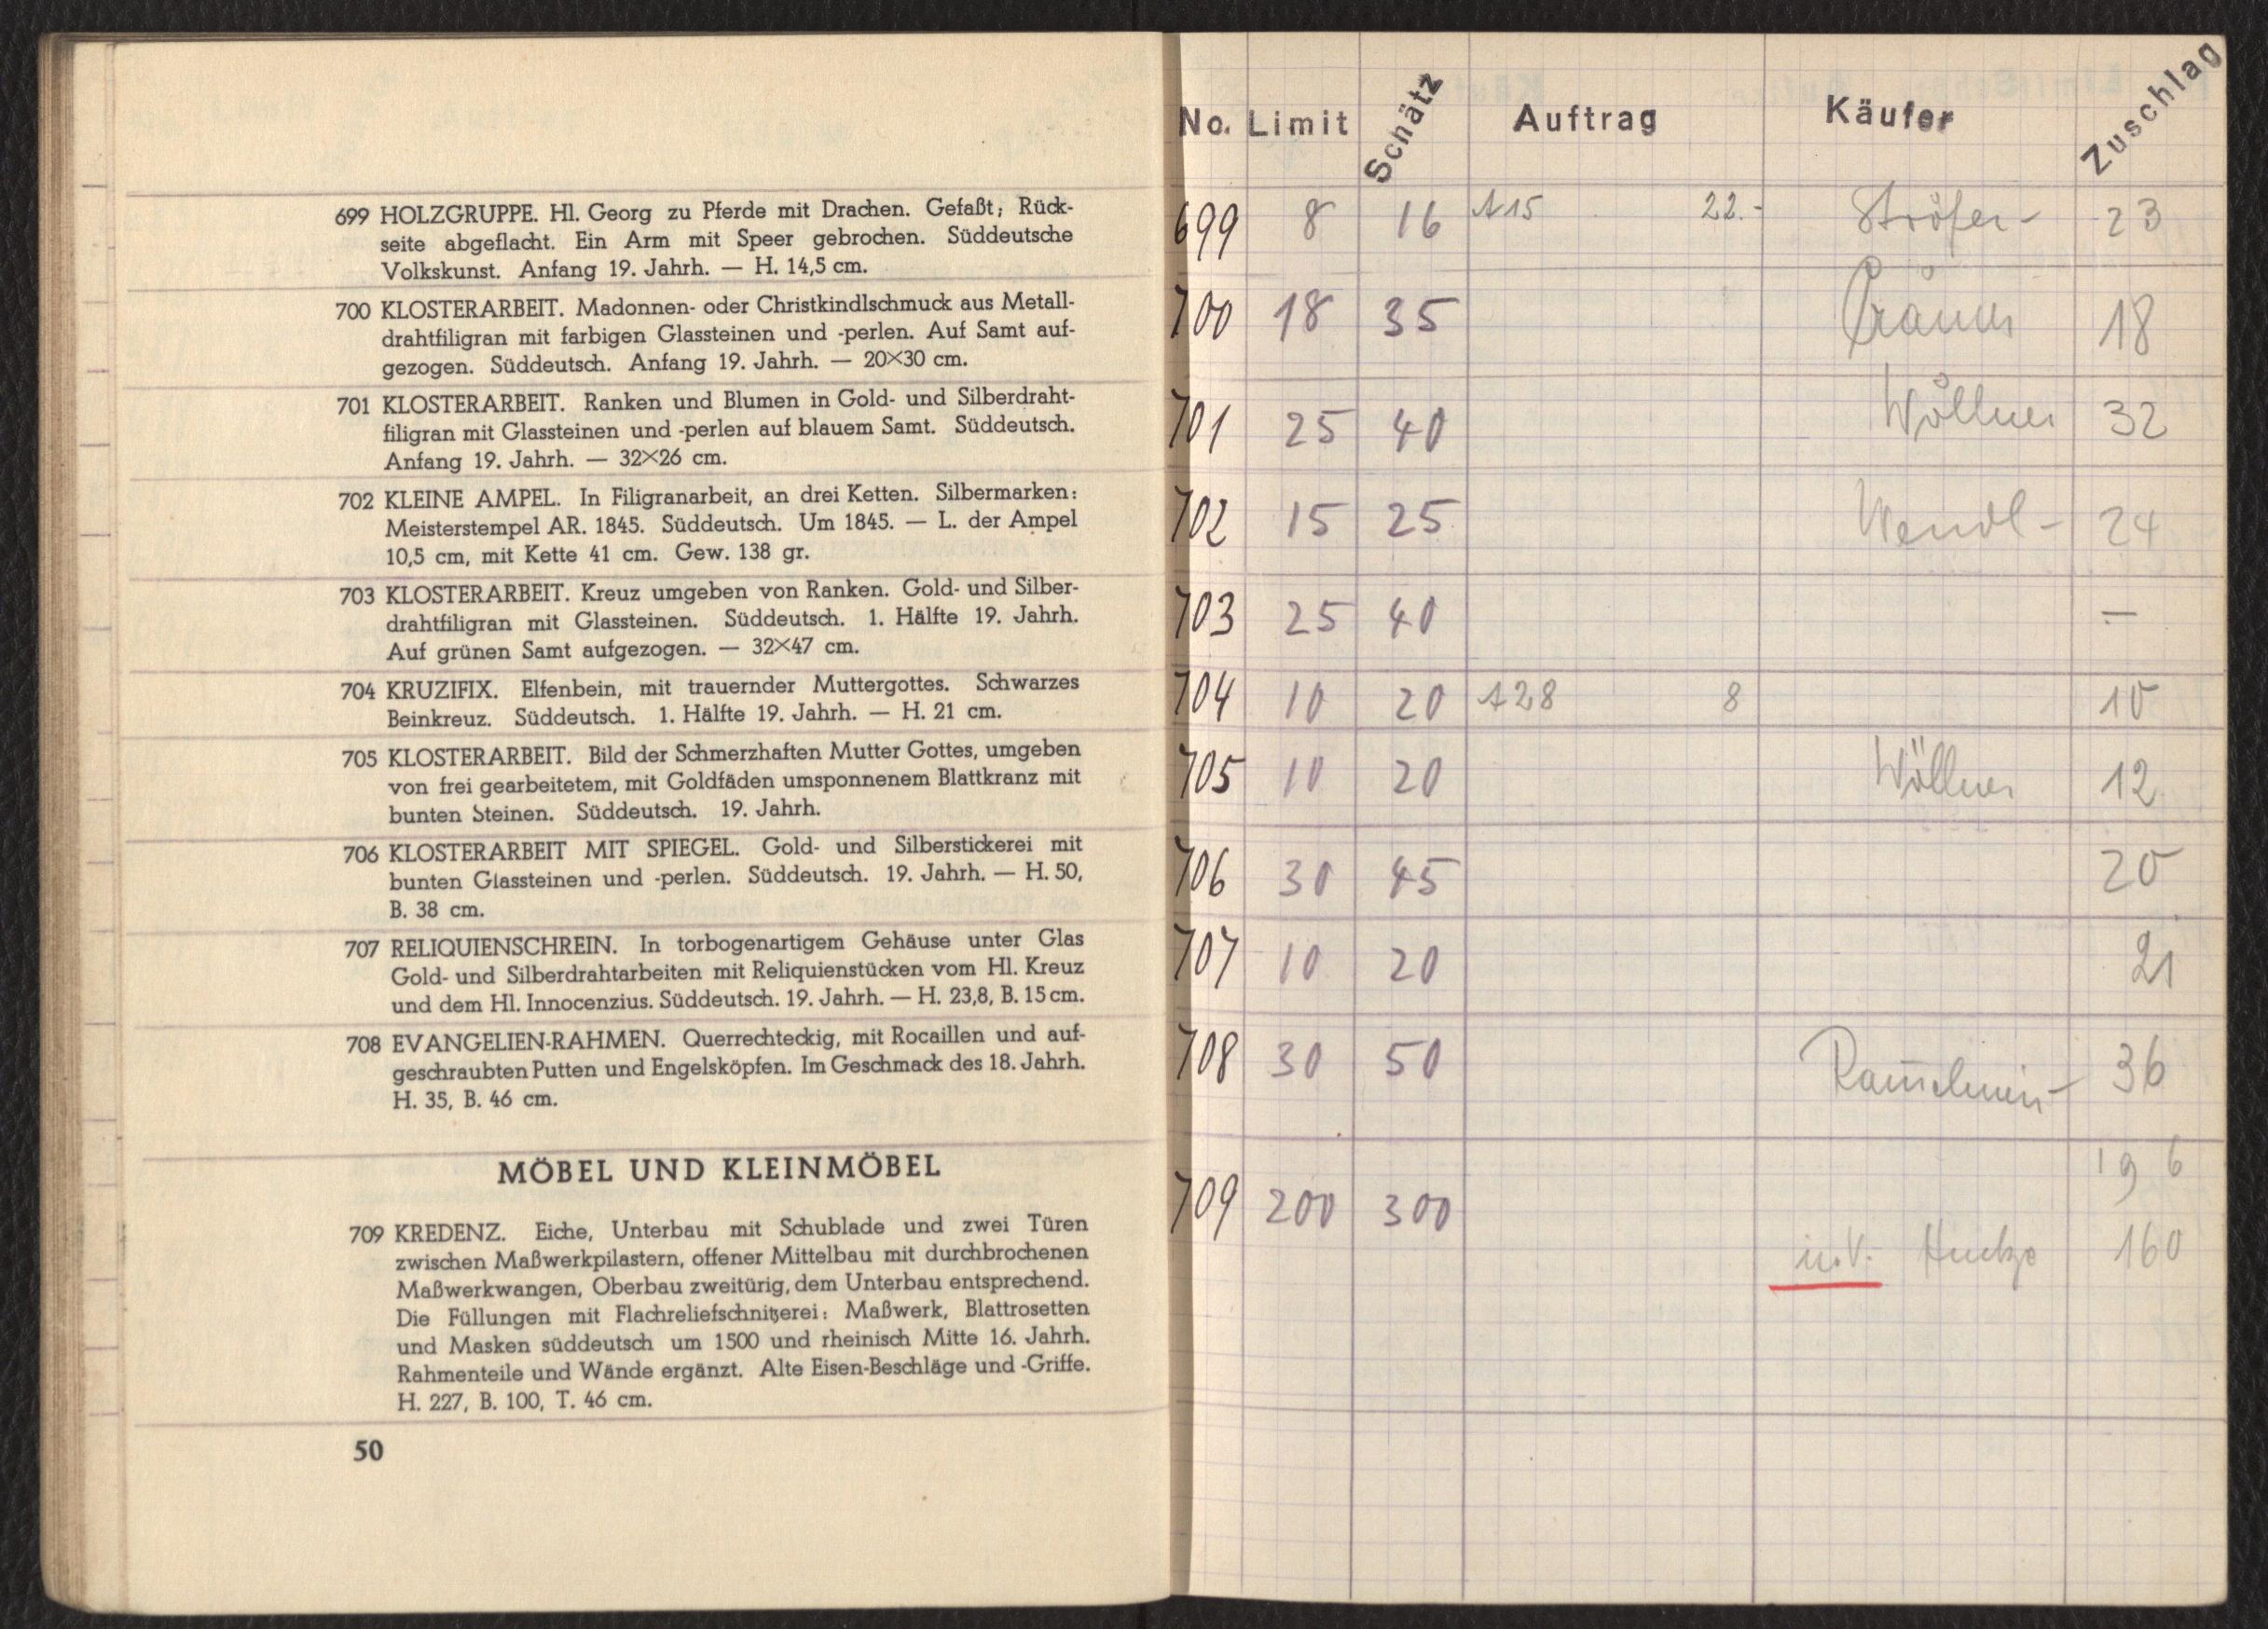 699 HOLZGRUPPE. Hl. Georg zu Pferde mit Drachen. Gefaßt; Rück-
seite abgeflacht. Ein Arm mit Speer gebrochen. Süddeutsche
Volkskunst. Anfang 19. Jahrh. — H. 14,5 cm.
700 KLOSTERARBEIT. Madonnen- oder Christkindlschmuck aus Metall-
drahtfiligran mit farbigen Glassteinen und -perlen. Auf Samt auf-
gezogen. Süddeutsch. Anfang 19. Jahrh. — 20×30 cm.
701 KLOSTERARBEIT. Ranken und Blumen in Gold- und Silberdraht-
filigran mit Glassteinen und -perlen auf blauem Samt. Süddeutsch.
Anfang 19. Jahrh. — 32×26 cm.
702 KLEINE AMPEL. In Filigranarbeit, an drei Ketten. Silbermarken:
Meisterstempel AR. 1845. Süddeutsch. Um 1845. — L. der Ampel
10,5 cm, mit Kette 41 cm. Gew. 138 gr.
703 KLOSTERARBEIT. Kreuz umgeben von Ranken. Gold- und Silber-
drahtfiligran mit Glassteinen. Süddeutsch. 1. Hälfte 19. Jahrh.
Auf grünen Samt aufgezogen. — 32×47 cm.
704 KRUZIFIX. Elfenbein, mit trauernder Muttergottes. Schwarzes
Beinkreuz. Süddeutsch. 1. Hälfte 19. Jahrh. — H. 21 cm.
705 KLOSTERARBEIT. Bild der Schmerzhaften Mutter Gottes, umgeben
von frei gearbeitetem, mit Goldfäden umsponnenem Blattkranz mit
bunten Steinen. Süddeutsch. 19. Jahrh.
706 KLOSTERARBEIT MIT SPIEGEL. Gold- und Silberstickerei mit
bunten Glassteinen und -perlen. Süddeutsch. 19. Jahrh. — H. 50,
B. 38 cm.
707 RELIQUIENSCHREIN. In torbogenartigem Gehäuse unter Glas
Gold- und Silberdrahtarbeiten mit Reliquienstücken vom Hl. Kreuz
und dem Hl. Innocenzius. Süddeutsch. 19. Jahrh. — H. 23,8, B. 15 cm.
708 EVANGELIEN-RAHMEN. Querrechteckig, mit Rocaillen und auf-
geschraubten Putten und Engelsköpfen. Im Geschmack des 18. Jahrh.
H. 35, B. 46 cm.
MÖBEL UND KLEINMÖBEL
709 KREDENZ. Eiche, Unterbau mit Schublade und zwei Türen
zwischen Maßwerkpilastern, offener Mittelbau mit durchbrochenen
Maßwerkwangen, Oberbau zweitürig, dem Unterbau entsprechend.
Die Füllungen mit Flachreliefschnitzerei: Maßwerk, Blattrosetten
und Masken süddeutsch um 1500 und rheinisch Mitte 16. Jahrh.
Rahmenteile und Wände ergänzt. Alte Eisen-Beschläge und -Griffe.
H. 227, B. 100, T. 46 cm.
50
No. Limit Schätz Auftrag Käufer Zuschlag
699 8 16 A15 22.- Ströfer - 23
700 18 35 18
701 25 40 Wöllner 32
702 15 25 Wendl - 24
703 25 40 —
704 10 20 A28 8 10
705 10 20 Wöllner 12
706 30 45 20
707 10 20 21
708 30 50 36
196
709 200 300
160